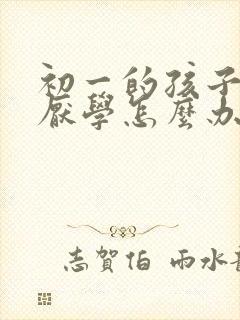 初一的孩子
厭學怎麼办
志賀伯 雨水